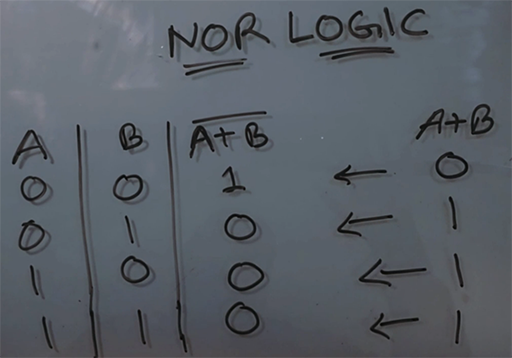 NOR LOGIC
A B A+B̅ A+B
0 0 1 ← 0
0 1 0 ← 1
1 0 0 ← 1
1 1 0 ← 1